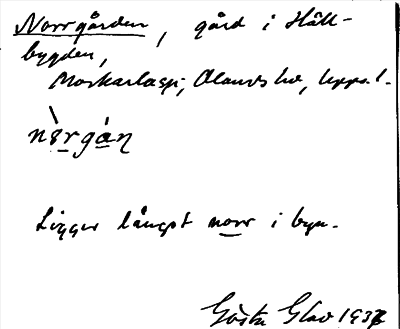 Norrgården, gård i Häll-
bygden,
Morkarlasn; Olands hd, Upps. l.
nòrgán
Ligger längst norr i byn.
Gösta Glav 1937